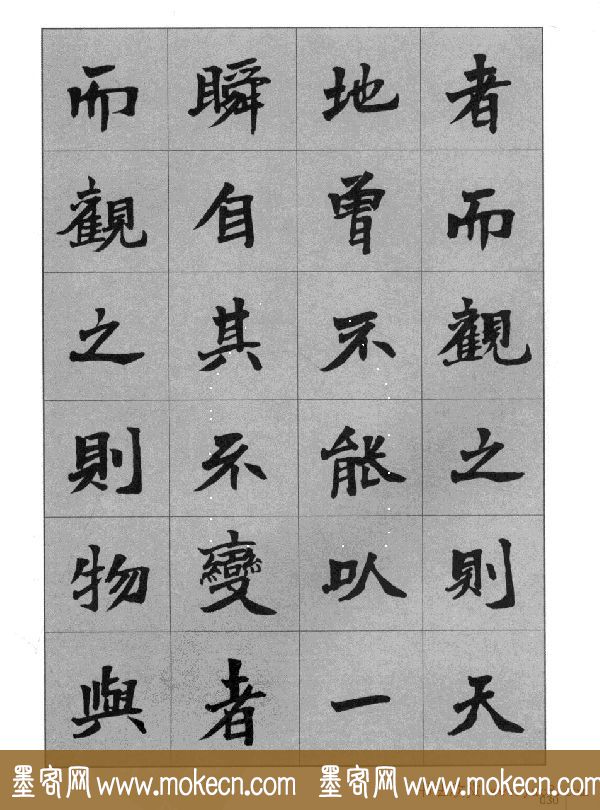 者而觀之則天
地曾不能以一
瞬自其不變者
而觀之則物與
墨客网 www.mokecn.com 墨客网 www.mokecn.com
030